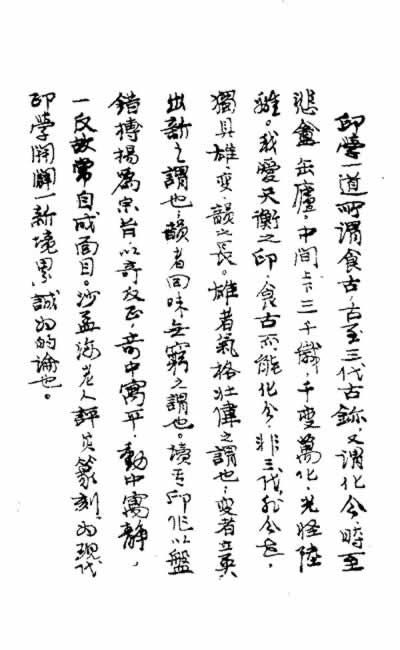 印學一道所謂食古,古至三代古鉨,又謂化今,時至
悲盦缶廬,中間上下三千歲,千變萬化,光怪陸
離。我愛天衡之印,食古而能化今,非三代,非今世,
獨具雄、變、韻之長。雄者氣格壯偉之謂也;變者立異
出新之謂也;韻者回味無窮之謂也。讀其印作以盤
錯搏揚爲宗旨以奇反正,奇中寓平,動中寓靜,
一反故常自成面目。沙孟海老人評其篆刻爲現代
印學開闢一新境界,誠爲的論也。